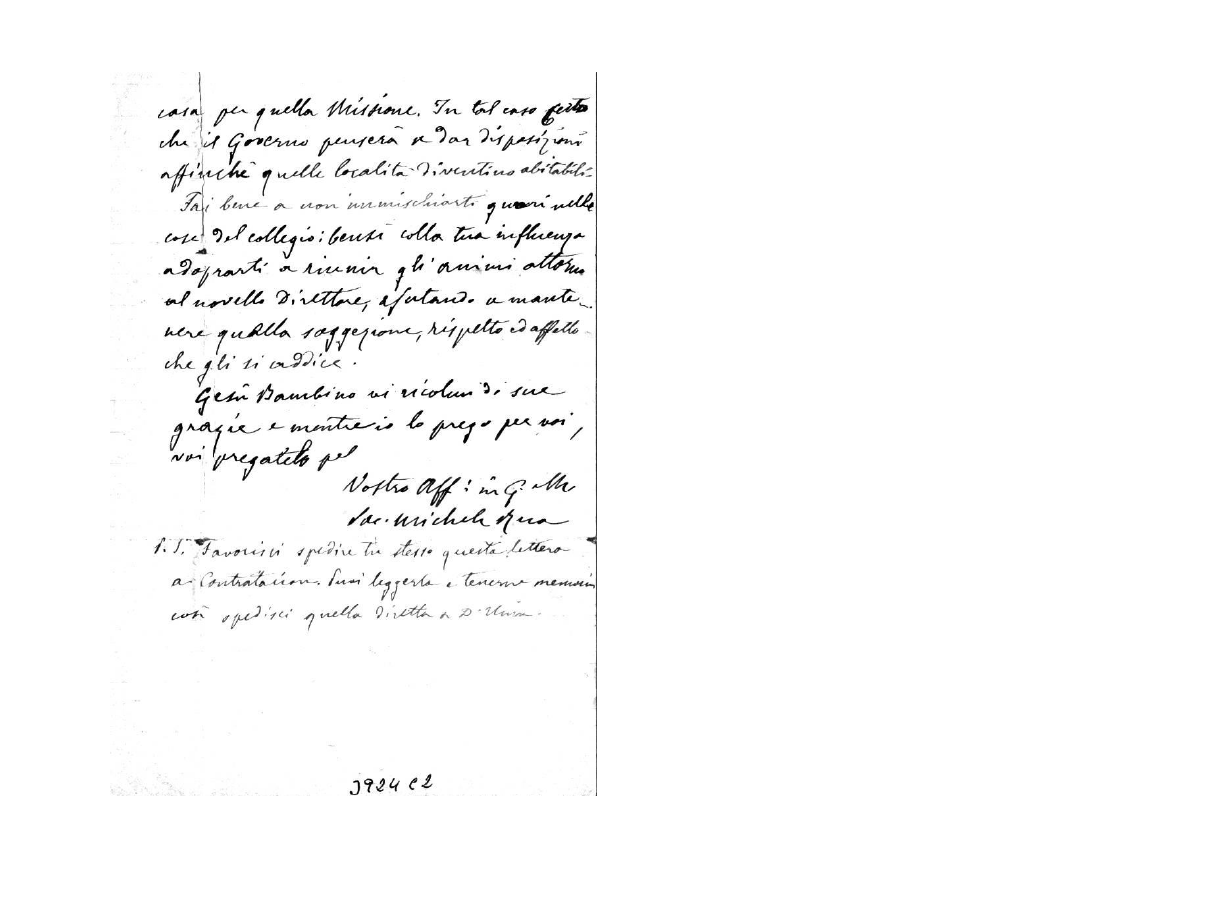 casa per quella Missione. In tal caso certo
che il Governo penserà a dar disposizioni
affinchè quelle località diventino abitabili.
Fai bene a non immischiarti guari nelle
cose del collegio: bensì colla tua influenza
adoprarti a riunir gli animi attorno
al novello Direttore, ajutando a mante-
nere quella soggezione, rispetto ed affetto
che gli si addice.
Gesù Bambino vi ricolmi di sue
grazie e mentre io lo prego per voi,
voi pregatelo pel
Vostro Aff: in G. e M.
Sac. Michele Rua
P. S. Favorisci spedire tu stesso questa lettera
a Contratacion. Puoi leggerla e tenerne memoria
così spedisci quella diretta a D. Unia.
3924 C2